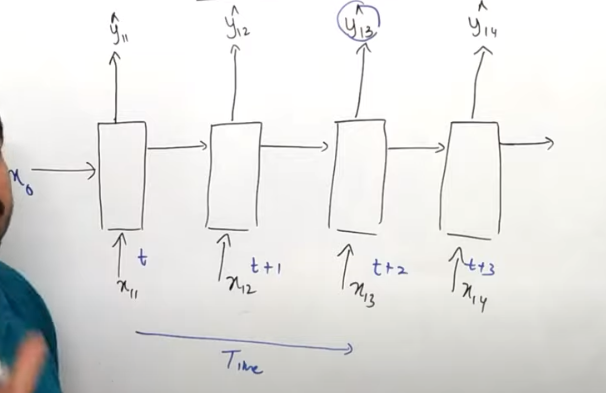 ŷ₁₁ ŷ₁₂ ŷ₁₃ ŷ₁₄
x₀
t t+1 t+2 t+3
x₁₁ x₁₂ x₁₃ x₁₄
Time